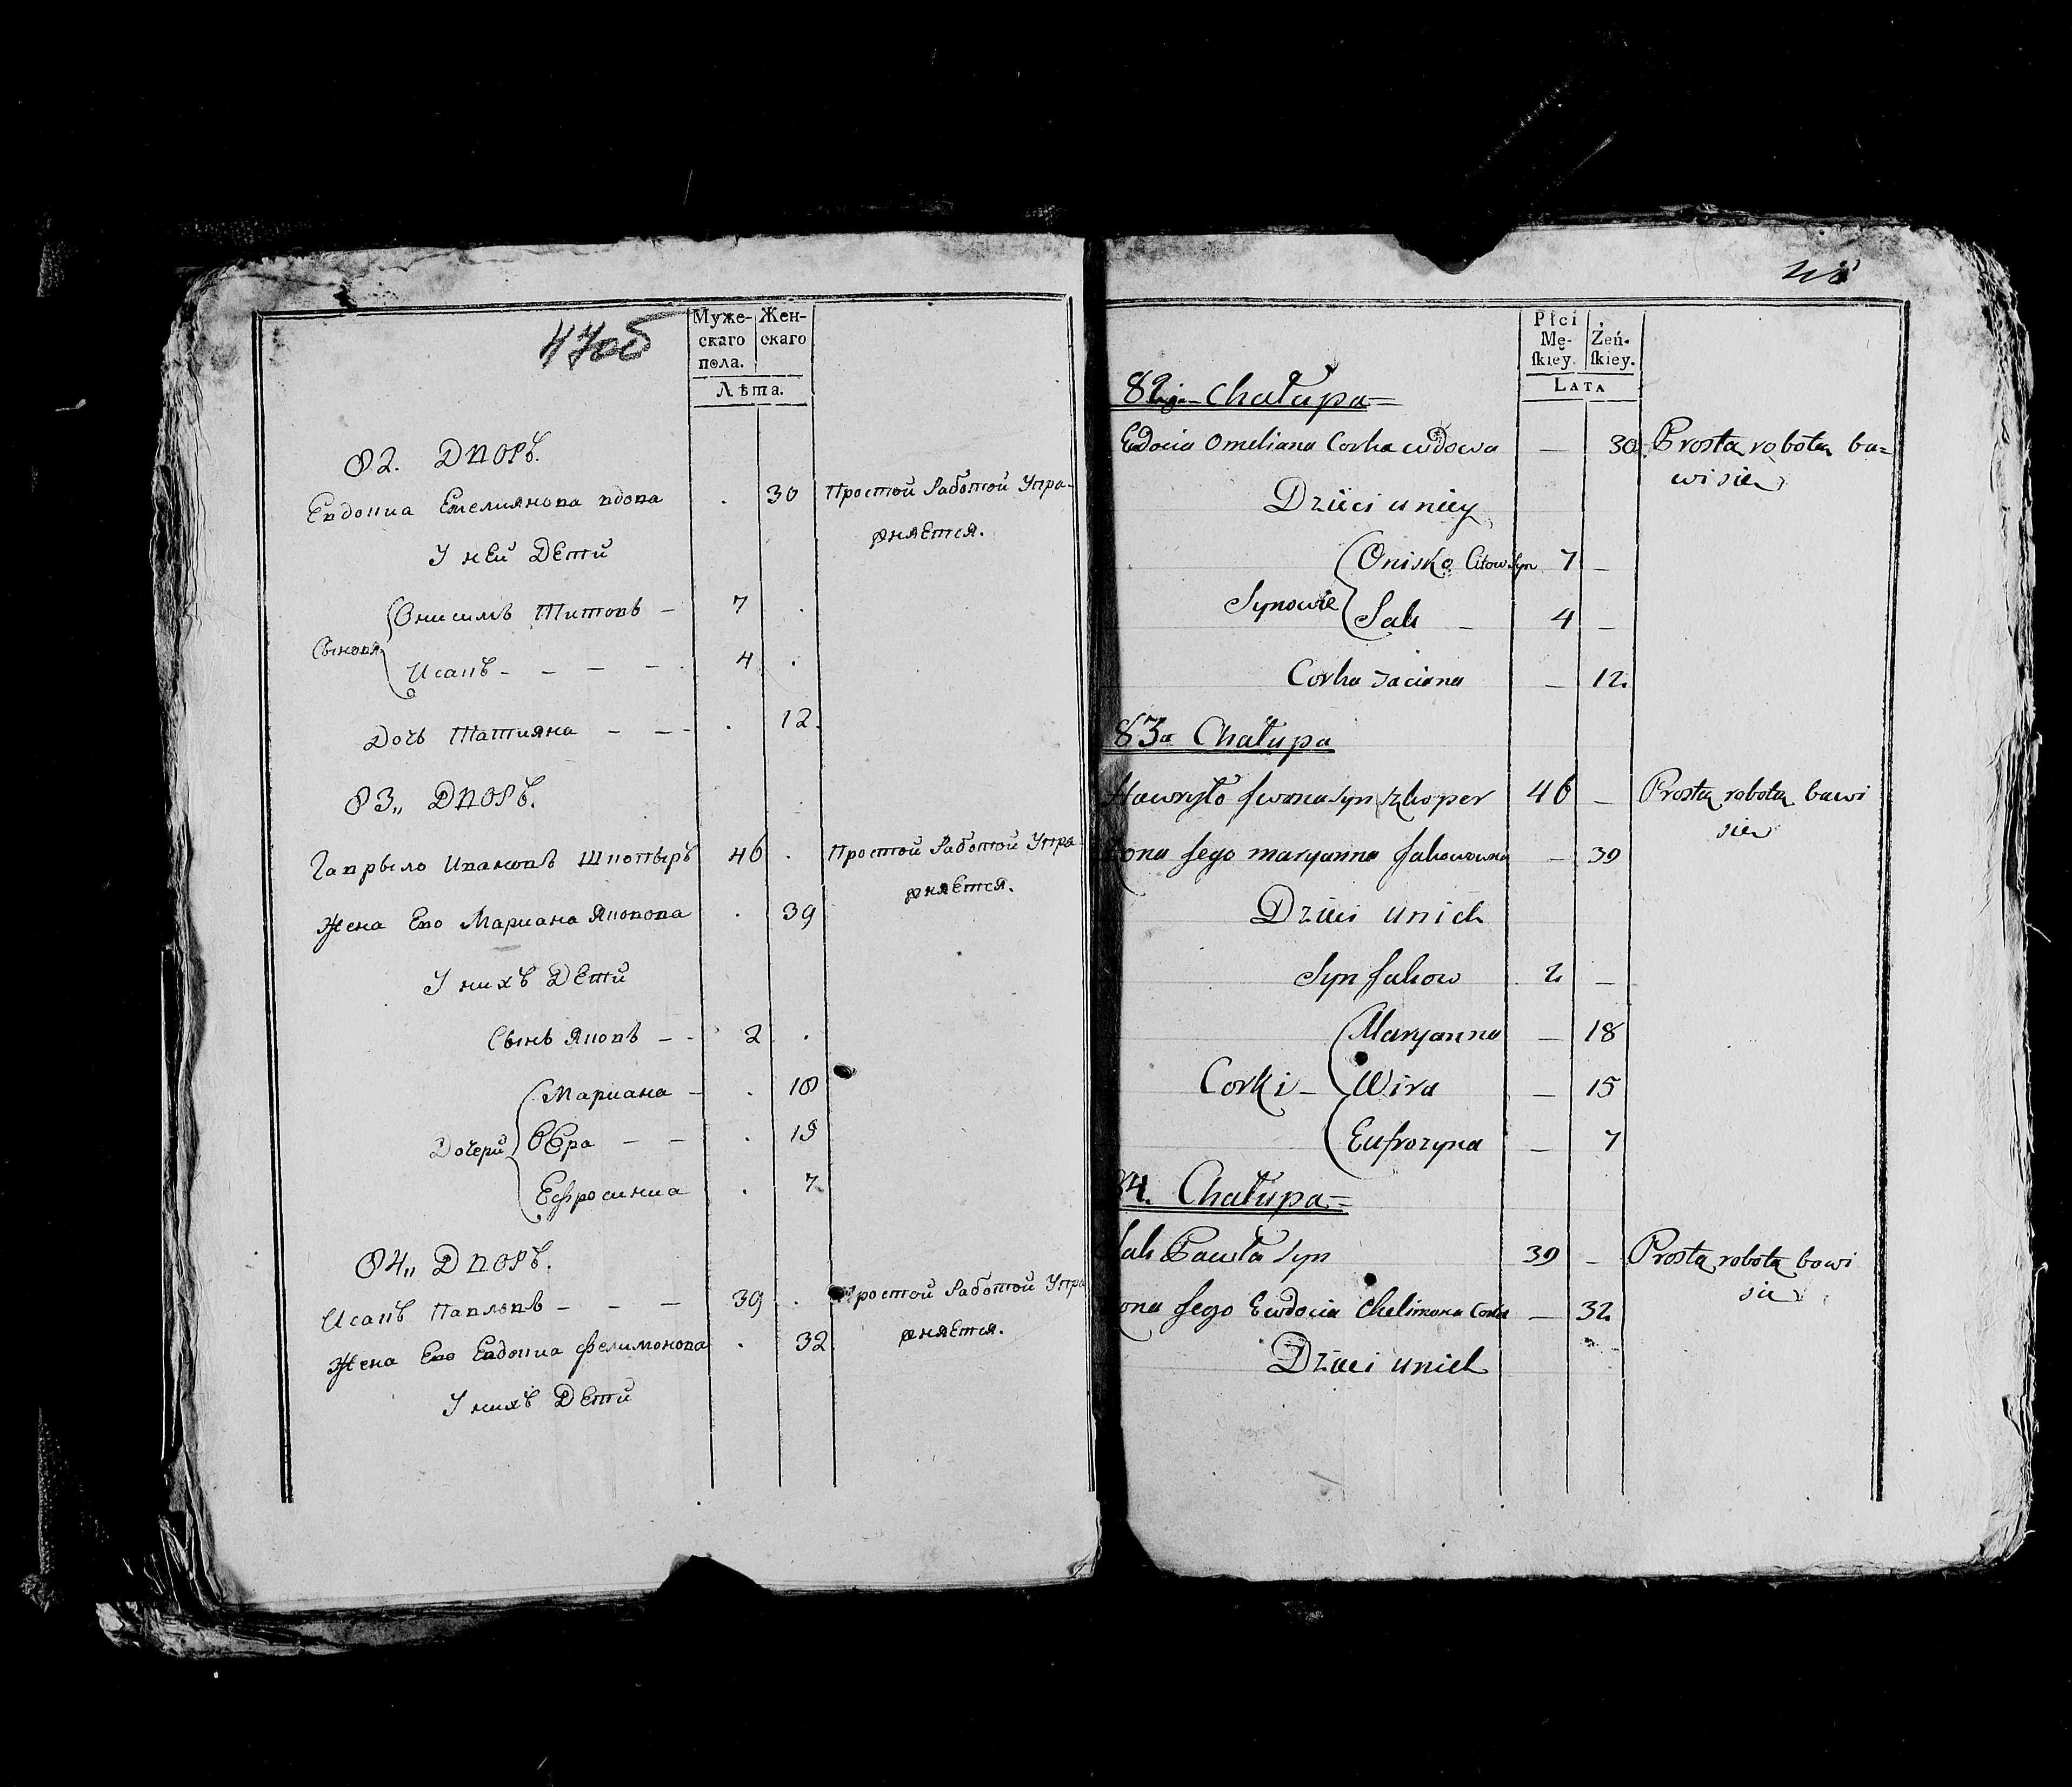 47об
Муже-
скаго
пола.
Жен-
скаго
Лѣта.
82. Дворъ.
Евдокиа Емелиянова вдова . 30 Простой Работой Упра-
жняется.
У ней Дети
Сыновя Онисимъ Титовъ – 7 .
Исакъ – – – – 4 .
Дочь Татияна – – – . 12.
83„ Дворъ.
Гаврыло Ивановъ Шкопыръ 46 . Простой Работой Упра-
жняется.
Жена Ево Мариана Якопова . 39
У нихъ Дети
Сынъ Яковъ – – 2 .
Дочери Мариана – . 18
Вѣра – – . 15
Ефросиниа . 7
84„ Дворъ.
Исакъ Павловъ – – – 39 . Простой Работой Упра
жняется.
Жена Ево Евдокиа Филимонова . 32
У нихъ Дети
48
Płci
Mę-
ſkiey.
Żeń-
ſkiey.
LATA
82ga Chałupa =
Ewdocia Omeliana Corka wdowa — 30. Prostą robotą ba=
wi się
Dzieci u niey
Synowie Onisko Titow Syn 7 –
Sak – 4 –
Corka Taciana – 12.
83a Chałupa
Hawryło Iwana syn Szkoper 46 – Prostą robotą bawi
się
Żona Jego maryanna Jakowowna – 39
Dzieci u nich
Syn Jakow 2 –
Maryanna – 18
Corki – Wira – 15
Eufrozyna – 7
84. Chałupa =
Sak Pawła Syn 39 – Prostą robotą bawi
się
Żona Jego Ewdocia Chelimona Corka – 32.
Dzieci u nich